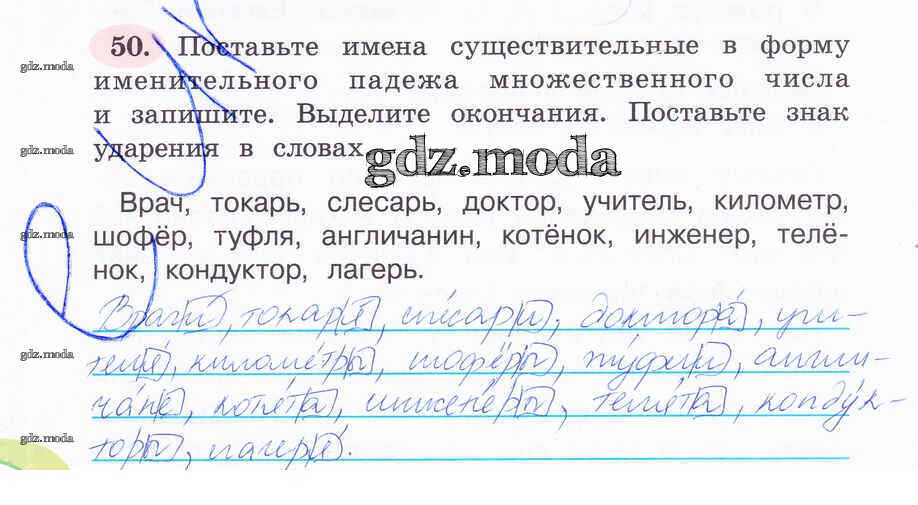 50. Поставьте имена существительные в форму
gdz.moda
именительного падежа множественного числа
и запишите. Выделите окончания. Поставьте знак
gdz.moda
ударения в словах.
gdz.moda
Врач, токарь, слесарь, доктор, учитель, километр,
gdz.moda
шофёр, туфля, англичанин, котёнок, инженер, телё-
нок, кондуктор, лагерь.
Врачи, токари, сле́сари, доктора́, учи-
gdz.moda
теля́, киломе́тры, шофёры, ту́фли, англи-
ча́не, котя́та, инжене́ры, теля́та, конду́к-
gdz.moda
торы, лагеря́.